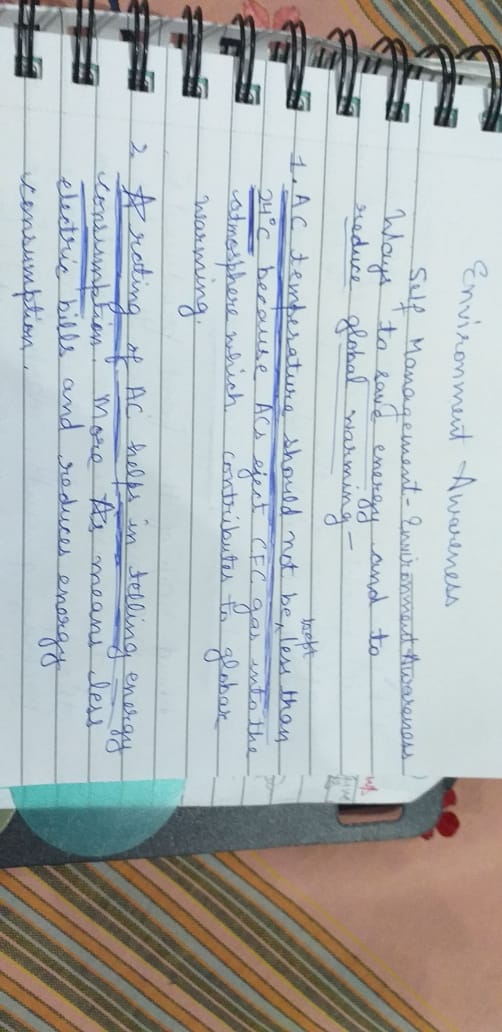 Environment Awareness
Self Management-Environment Awareness
Ways to save energy and to
reduce global warming-
1. AC temperature should not be kept less than
24°C because ACs eject CFC gas into the
atmosphere which contributes to global
warming.
2. ☆ rating of AC helps in telling energy
consumption. More ☆s means less
electric bills and reduces energy
consumption.